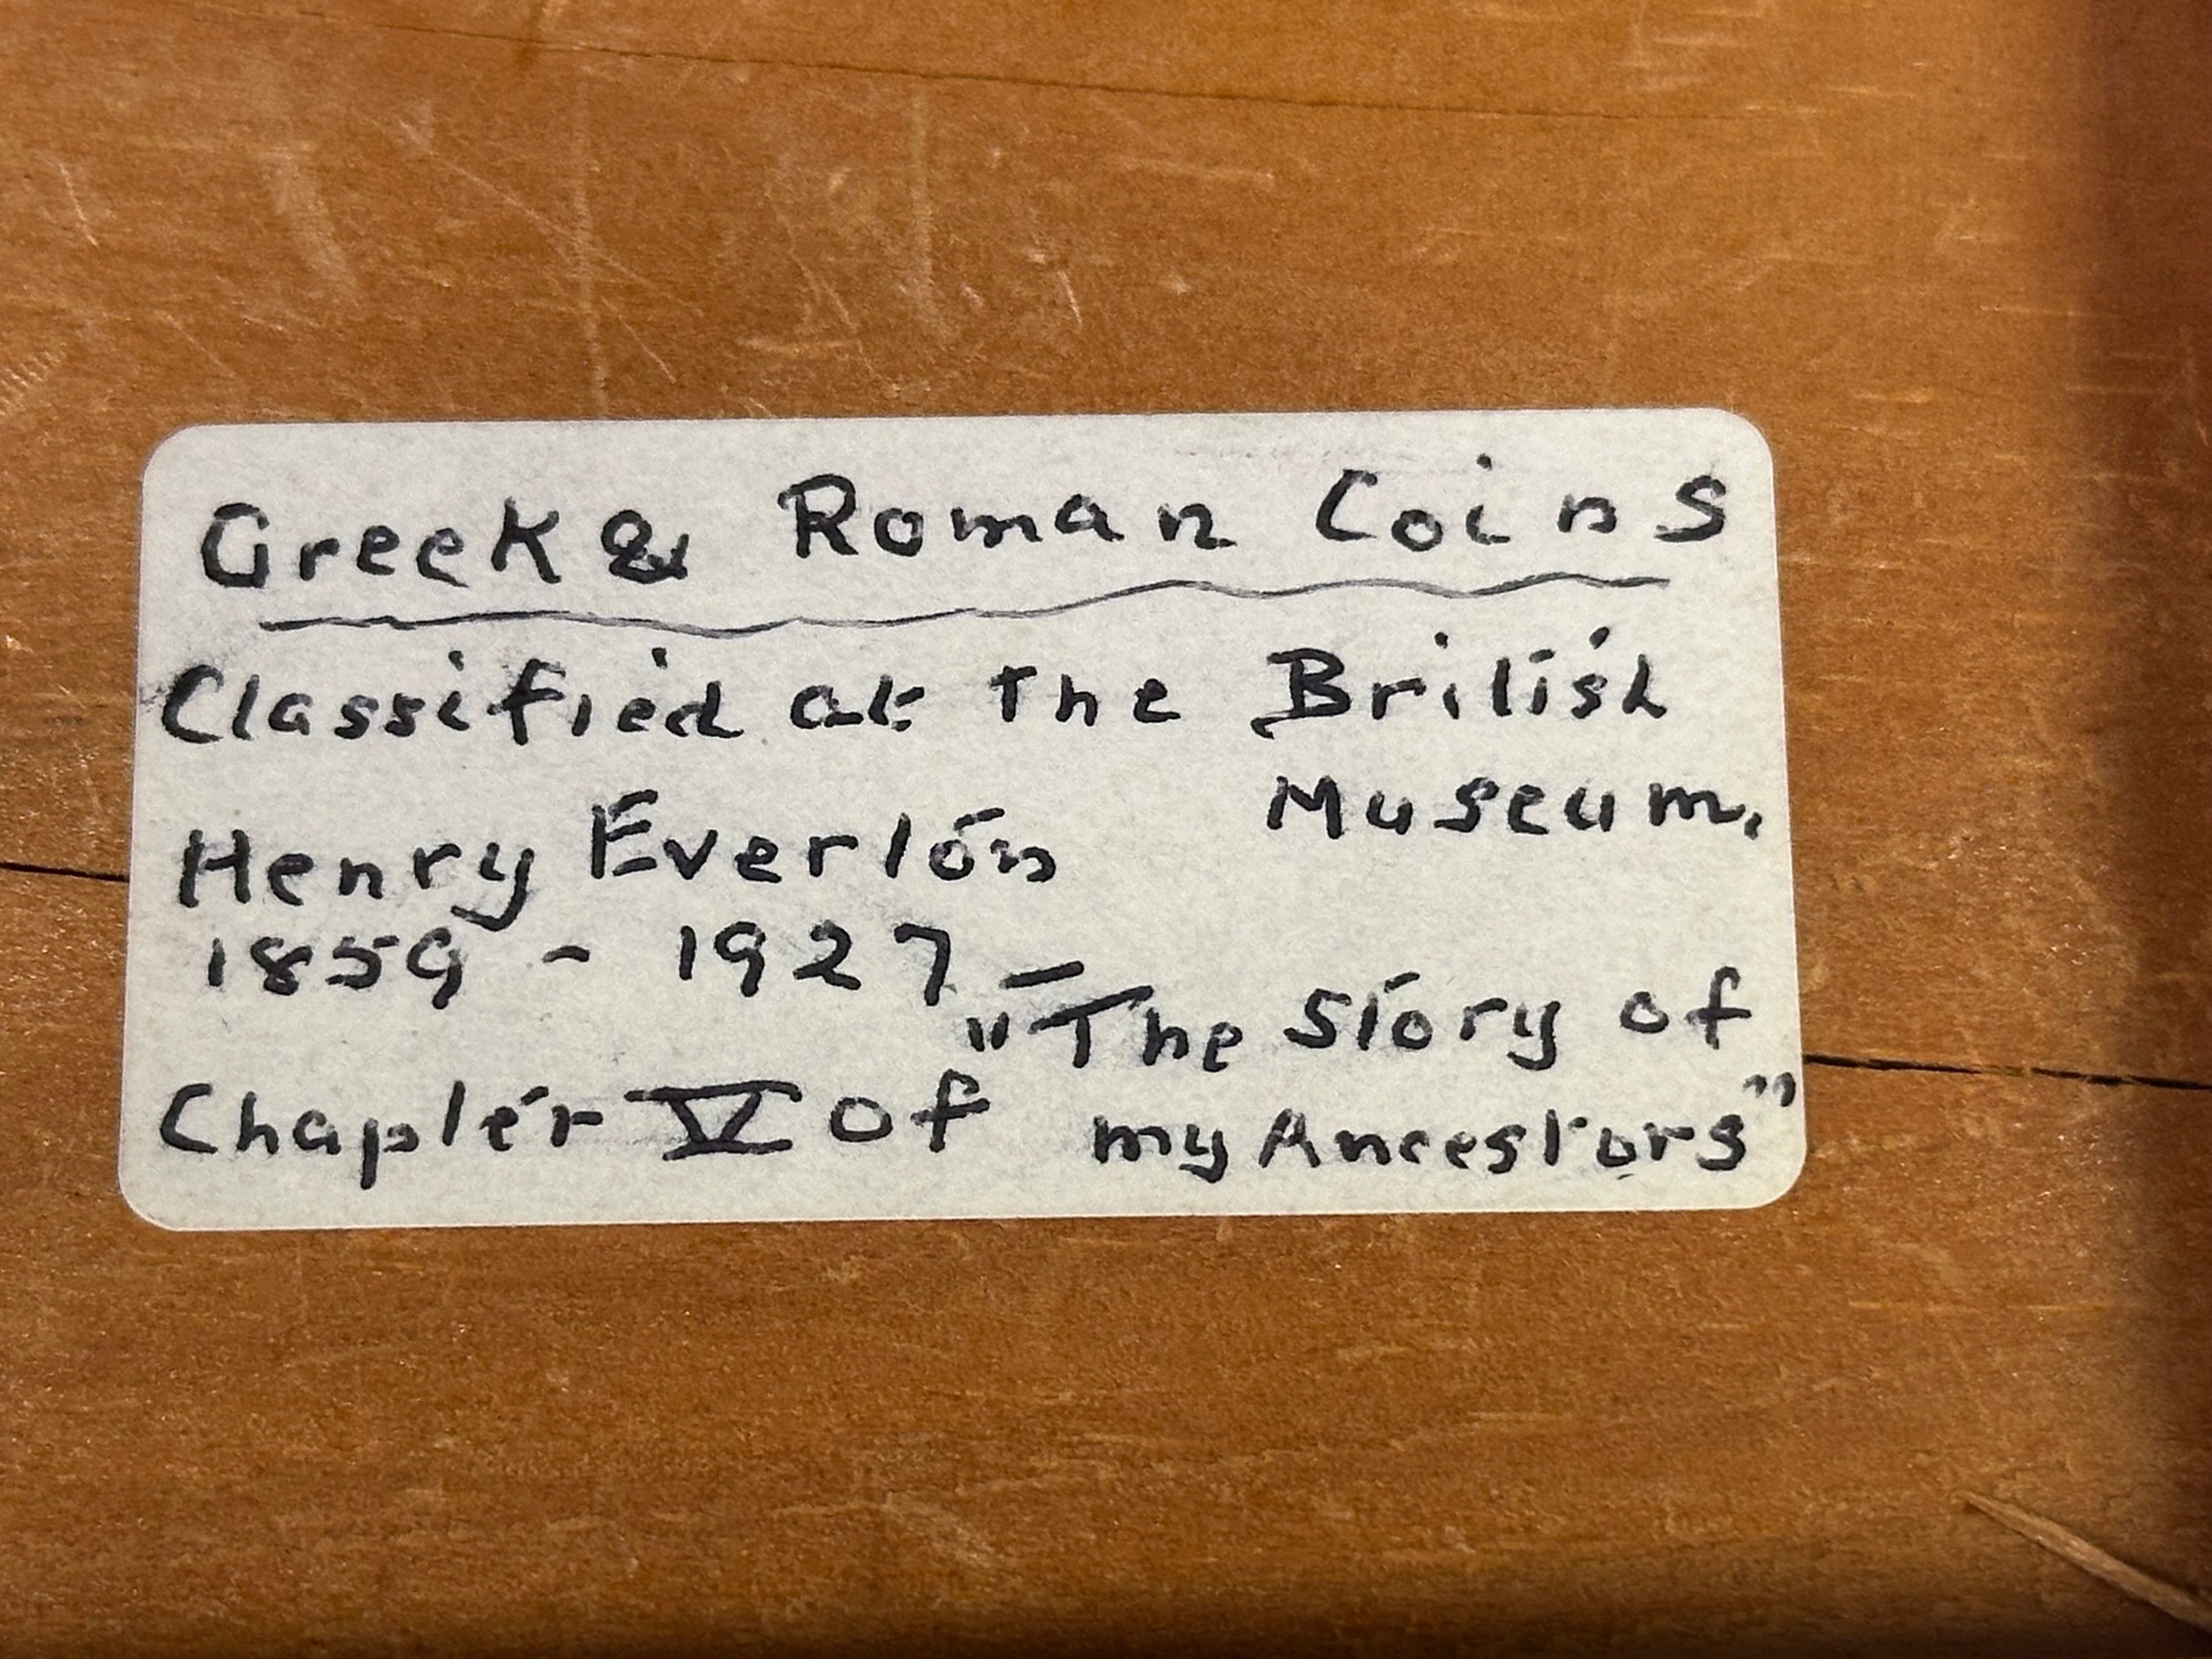 Greek & Roman Coins
Classified at the British
Museum.
Henry Everton
1859 - 1927 –
"The Story of
Chapter V of my Ancestors"